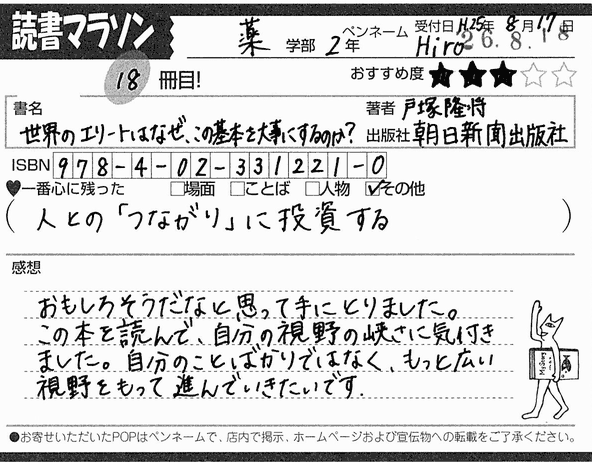 読書マラソン
薬 学部 2年 ペンネーム Hiro 受付日 H.25年 8月17日
26.8.18
18 冊目! おすすめ度 ★★★☆☆
書名 世界のエリートはなぜ、この基本を大事にするのか?
著者 戸塚隆将
出版社 朝日新聞出版社
ISBN 978-4-02-331221-0
♥一番心に残った □場面 □ことば □人物 ☑その他
(人との「つながり」に投資する)
感想
おもしろそうだなと思って手にとりました。
この本を読んで、自分の視野の狭さに気付き
ました。自分のことばかりではなく、もっと広い
視野をもって進んでいきたいです.
●お寄せいただいたPOPはペンネームで、店内で掲示、ホームページおよび宣伝物への転載をご了承ください。